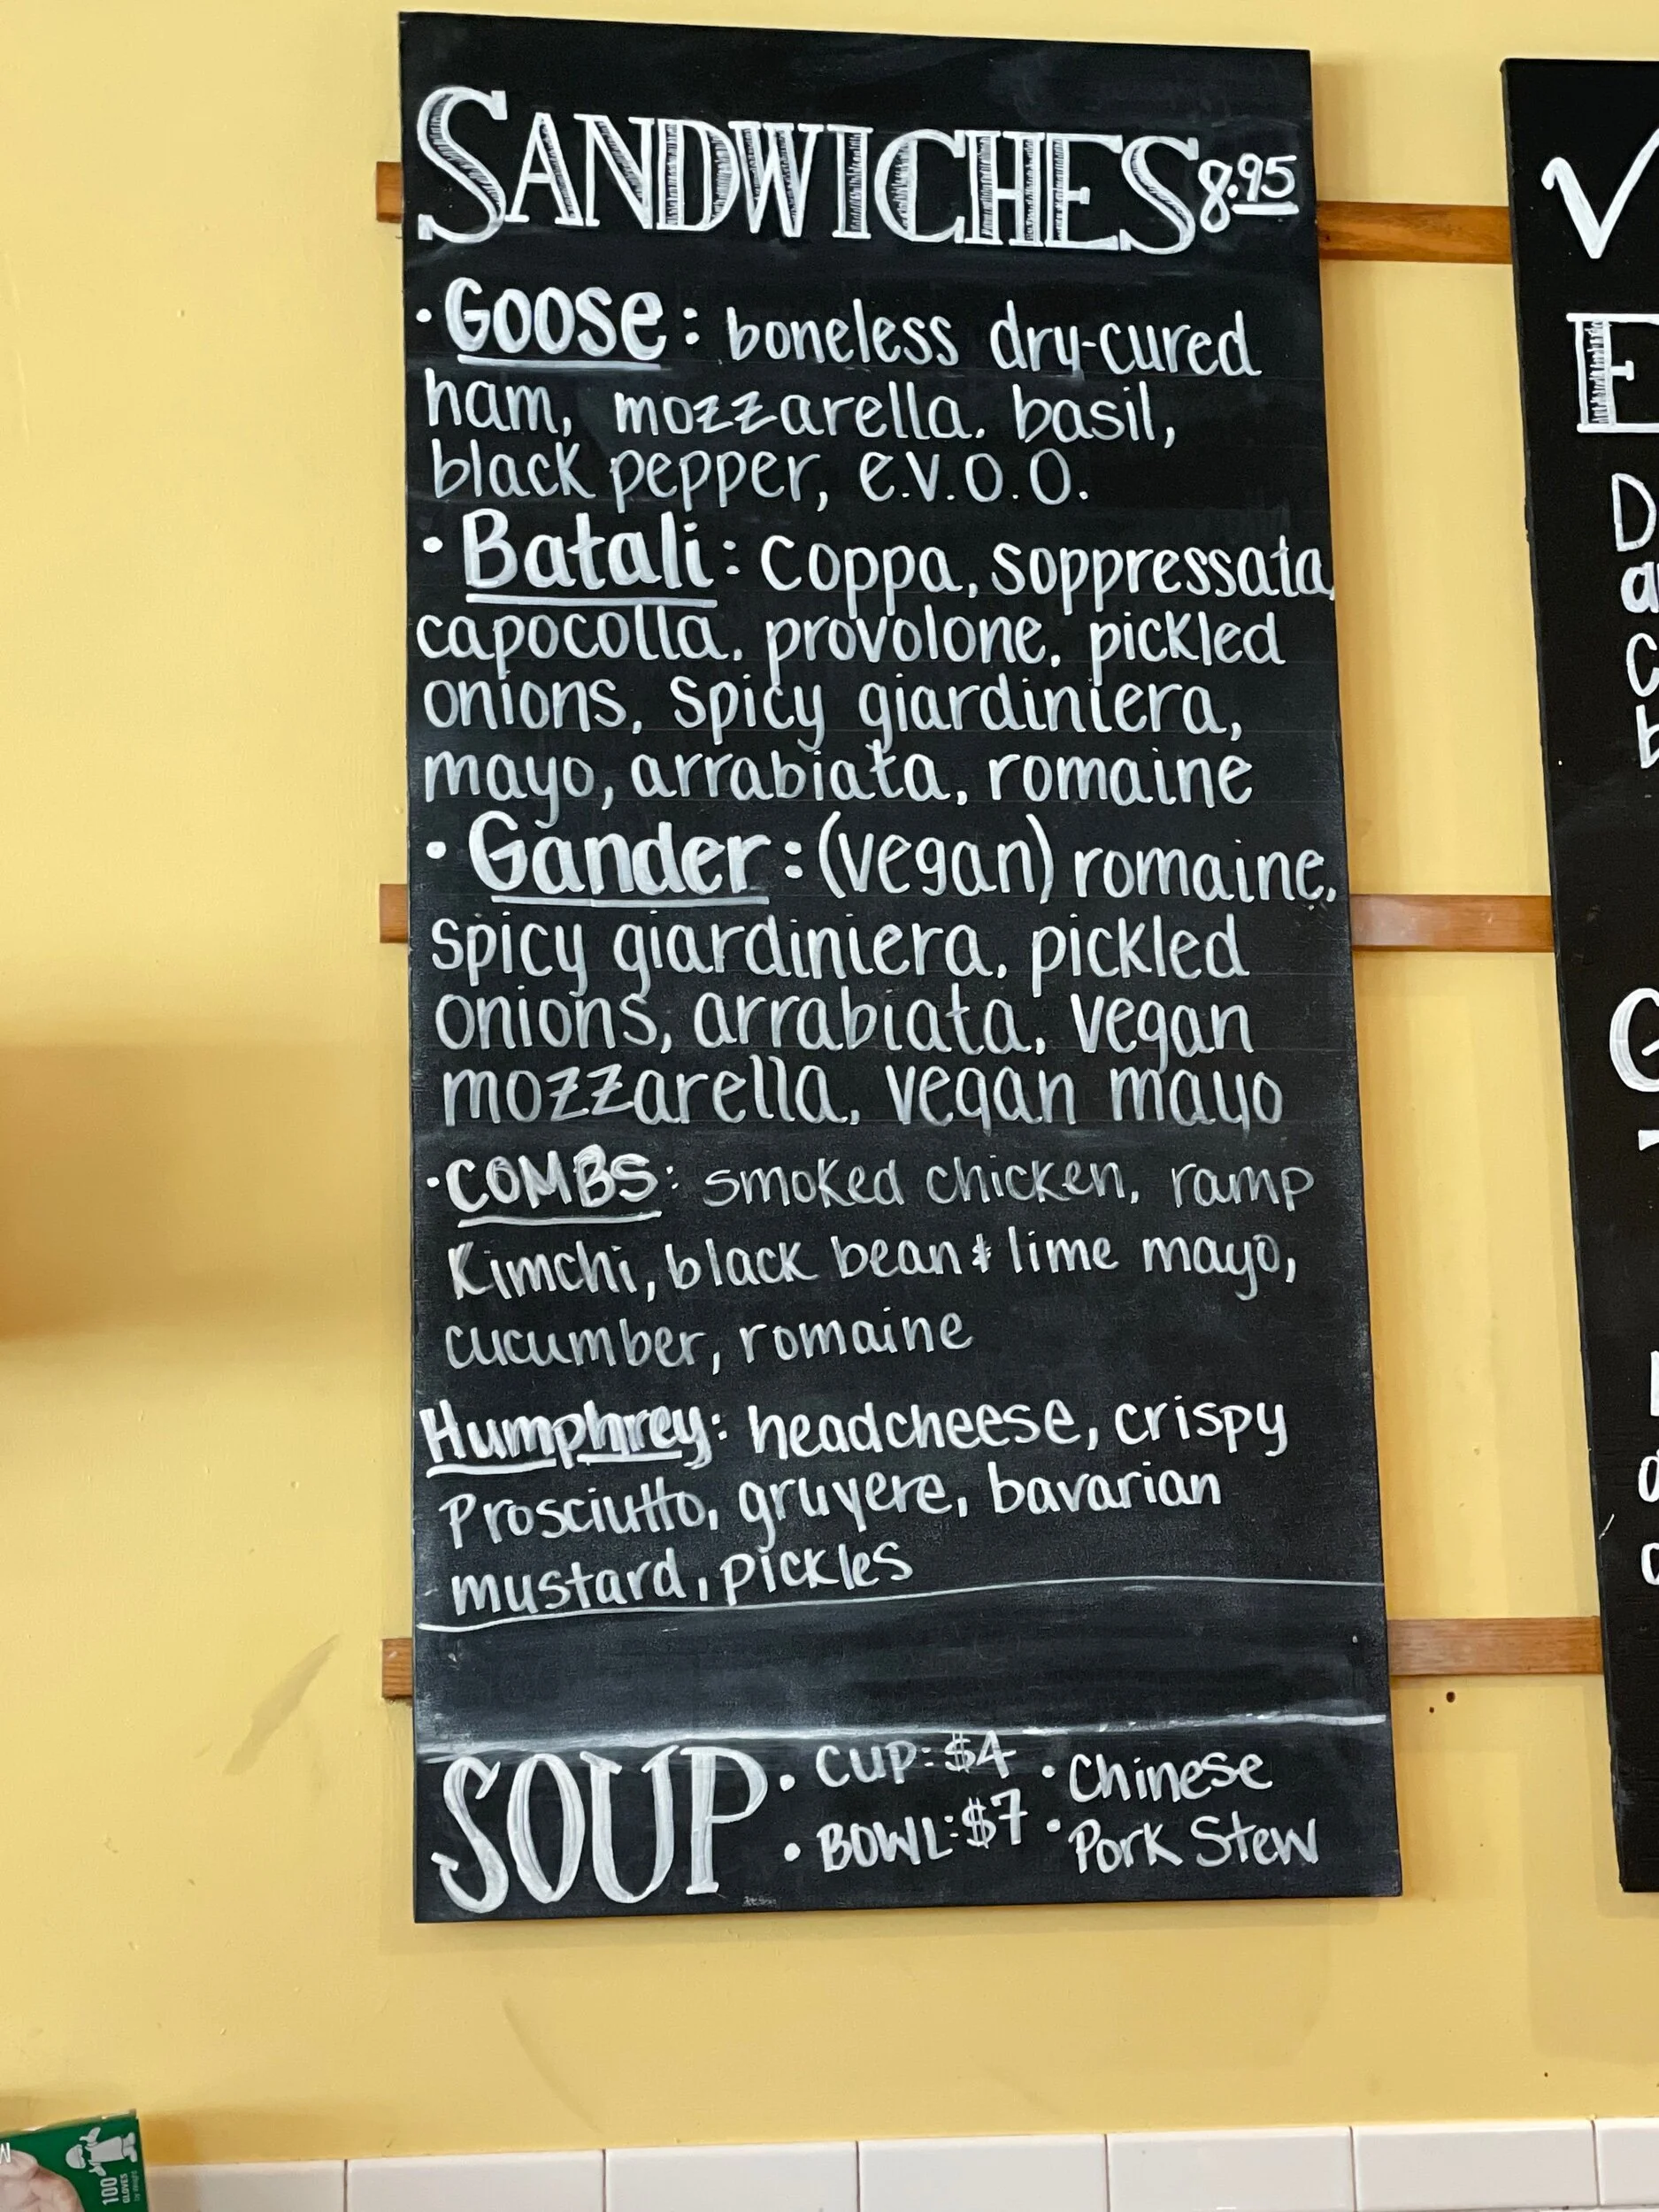 SANDWICHES 8.95
· Goose: boneless dry-cured
ham, mozzarella, basil,
black pepper, e.v.o.o.
· Batali: coppa, soppressata,
capocolla, provolone, pickled
onions, spicy giardiniera,
mayo, arrabiata, romaine
· Gander: (vegan) romaine,
spicy giardiniera, pickled
onions, arrabiata, vegan
mozzarella, vegan mayo
· COMBS: smoked chicken, ramp
Kimchi, black bean & lime mayo,
cucumber, romaine
Humphrey: headcheese, crispy
Prosciutto, gruyere, bavarian
mustard, pickles
SOUP · CUP: $4 · Chinese
· BOWL: $7 · Pork Stew
100
GLOVES